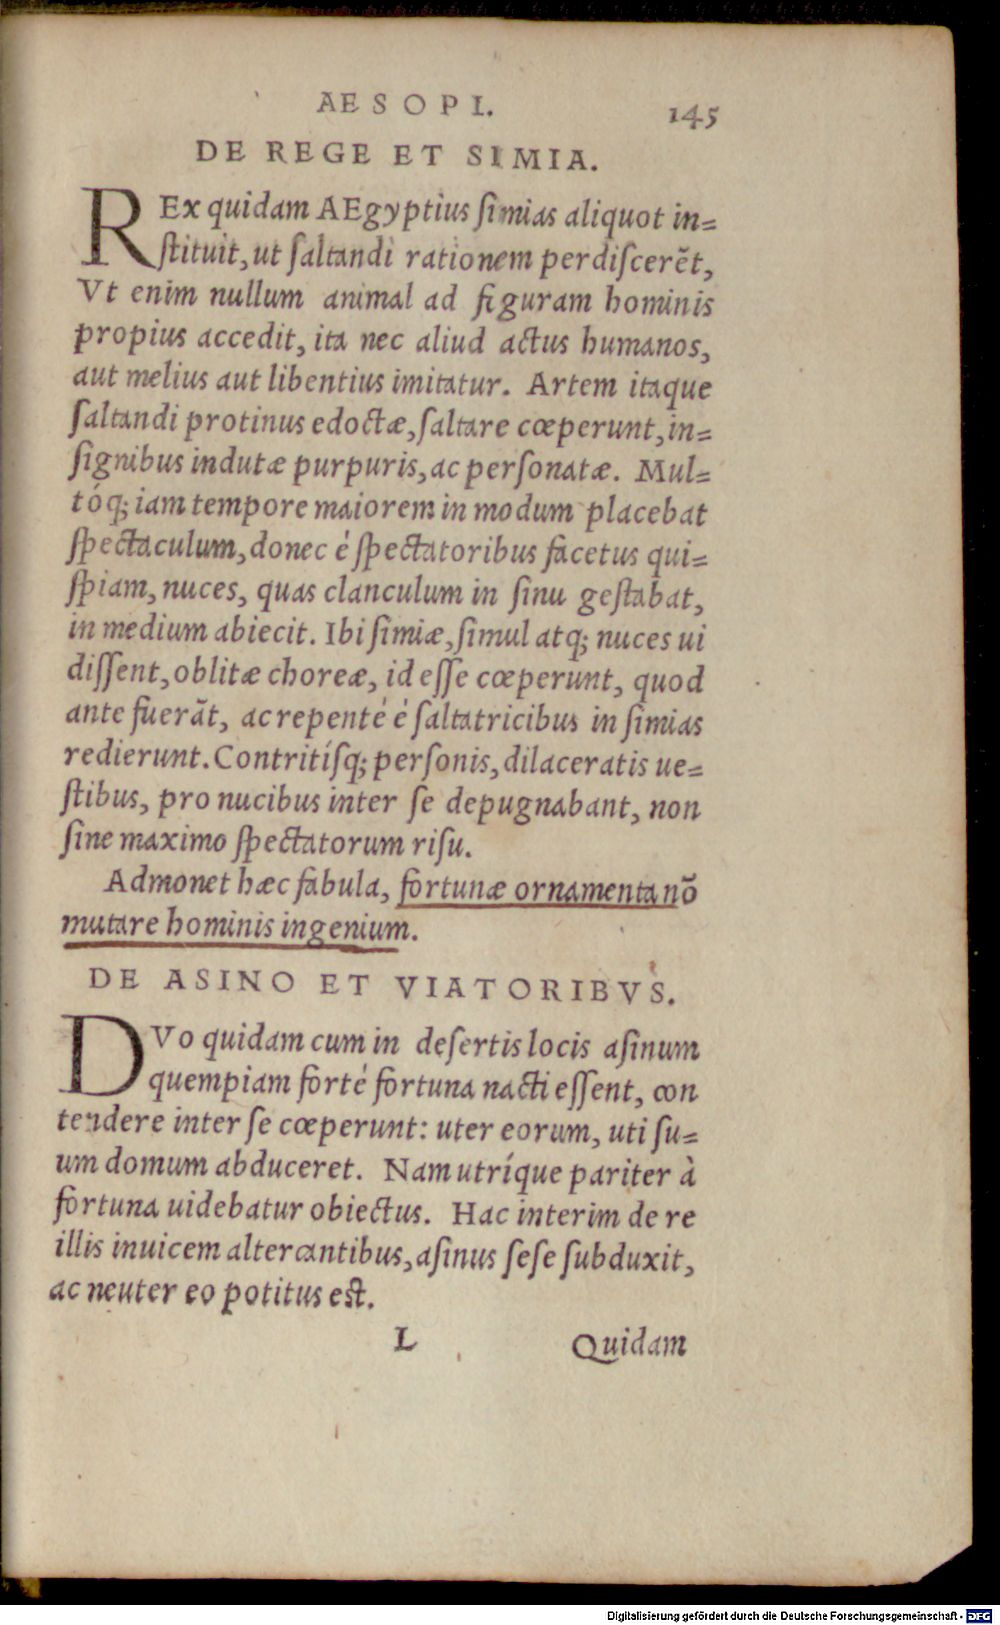 AESOPI. 145
DE REGE ET SIMIA.
REx quidam AEgyptius ſimias aliquot in=
ſtituit, ut ſaltandi rationem perdiſcerẽt,
Vt enim nullum animal ad figuram hominis
propius accedit, ita nec aliud actus humanos,
aut melius aut libentius imitatur. Artem itaque
ſaltandi protinus edoctæ, ſaltare cœperunt, in=
ſignibus indutæ purpuris, ac perſonatæ. Mul=
tóq; iam tempore maiorem in modum placebat
ſpectaculum, donec é ſpectatoribus facetus qui=
ſpiam, nuces, quas clanculum in ſinu geſtabat,
in medium abiecit. Ibi ſimiæ, ſimul atq; nuces ui
diſſent, oblitæ choreæ, id eſſe cœperunt, quod
ante fuerãt, ac repenté é ſaltatricibus in ſimias
redierunt. Contritíſq; perſonis, dilaceratis ue=
ſtibus, pro nucibus inter ſe depugnabant, non
ſine maximo ſpectatorum riſu.
Admonet hæc fabula, fortunæ ornamenta nõ
mutare hominis ingenium.
DE ASINO ET VIATORIBVS.
DVo quidam cum in deſertis locis aſinum
quempiam forté fortuna nacti eſſent, con
tendere inter ſe cœperunt: uter eorum, uti ſu=
um domum abduceret. Nam utríque pariter à
fortuna uidebatur obiectus. Hac interim de re
illis inuicem altercantibus, aſinus ſeſe ſubduxit,
ac neuter eo potitus eſt.
L Quidam
Digitalisierung gefördert durch die Deutsche Forschungsgemeinschaft - DFG